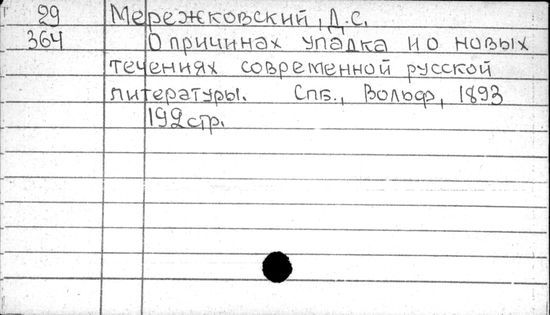 29 Мережковский, Д.С.
364 О причинах упадка и о новых
течениях современной русской
литературы. Спб., Вольф, 1893
192 стр.